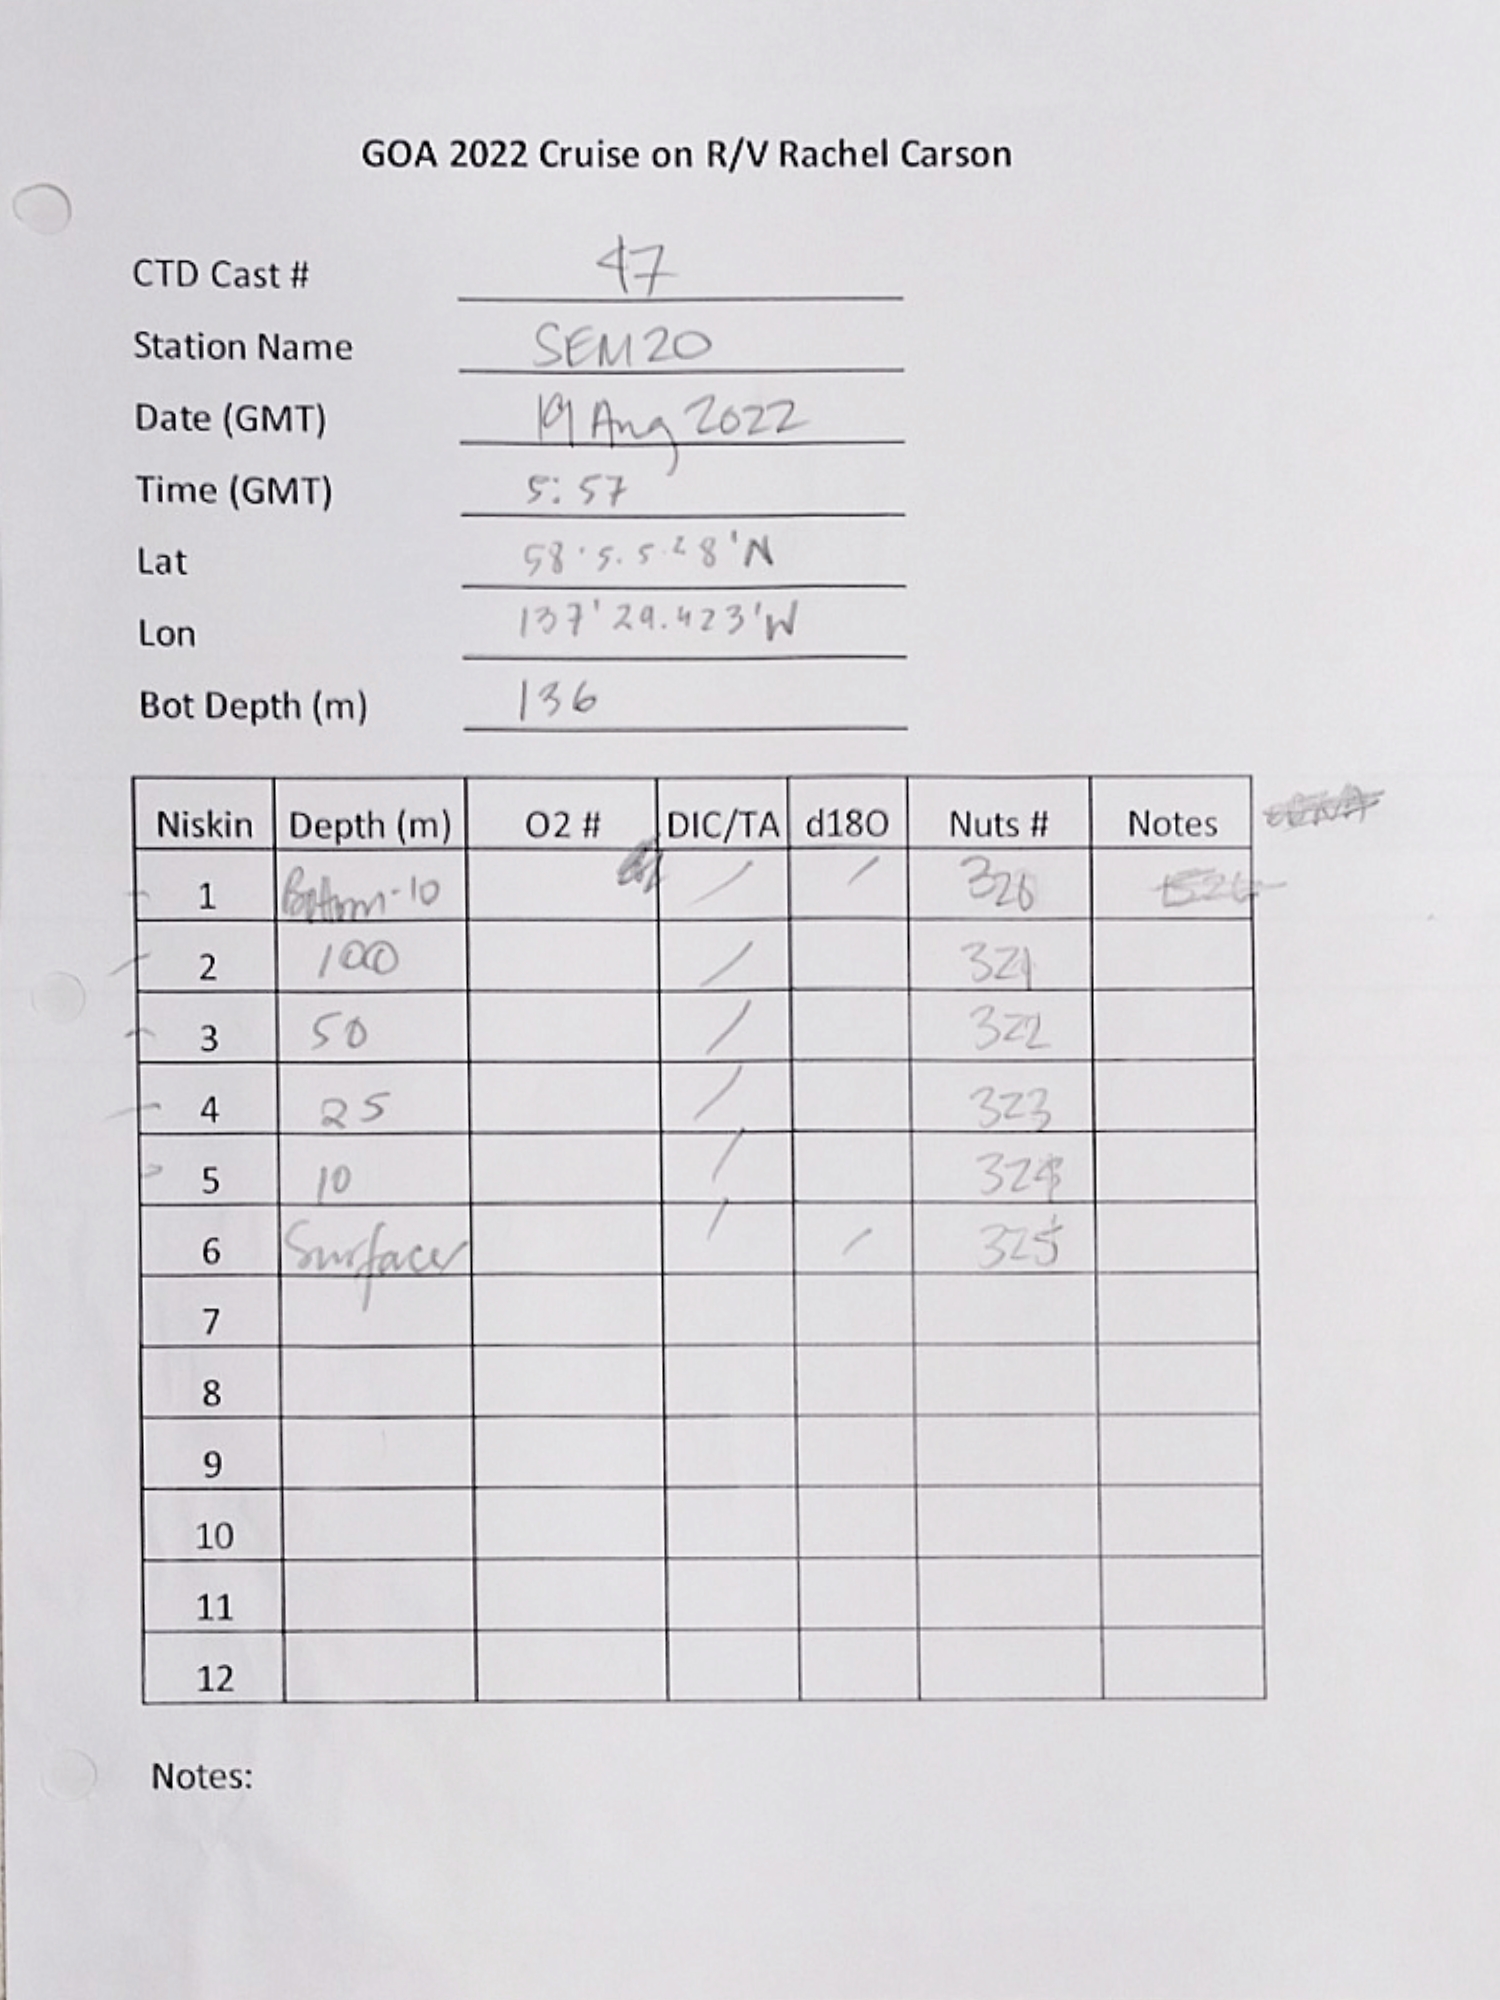 GOA 2022 Cruise on R/V Rachel Carson
CTD Cast # 47
Station Name SEM20
Date (GMT) 19 Aug 2022
Time (GMT) 5:57
Lat 58·5.5.28'N
Lon 137'29.423'W
Bot Depth (m) 136
Niskin Depth (m) O2 # DIC/TA d18O Nuts # Notes
1 Bottom-10 / / 320
2 100 / 321
3 50 / 322
4 25 / 323
5 10 / 324
6 Surface / / 325
7
8
9
10
11
12
Notes: